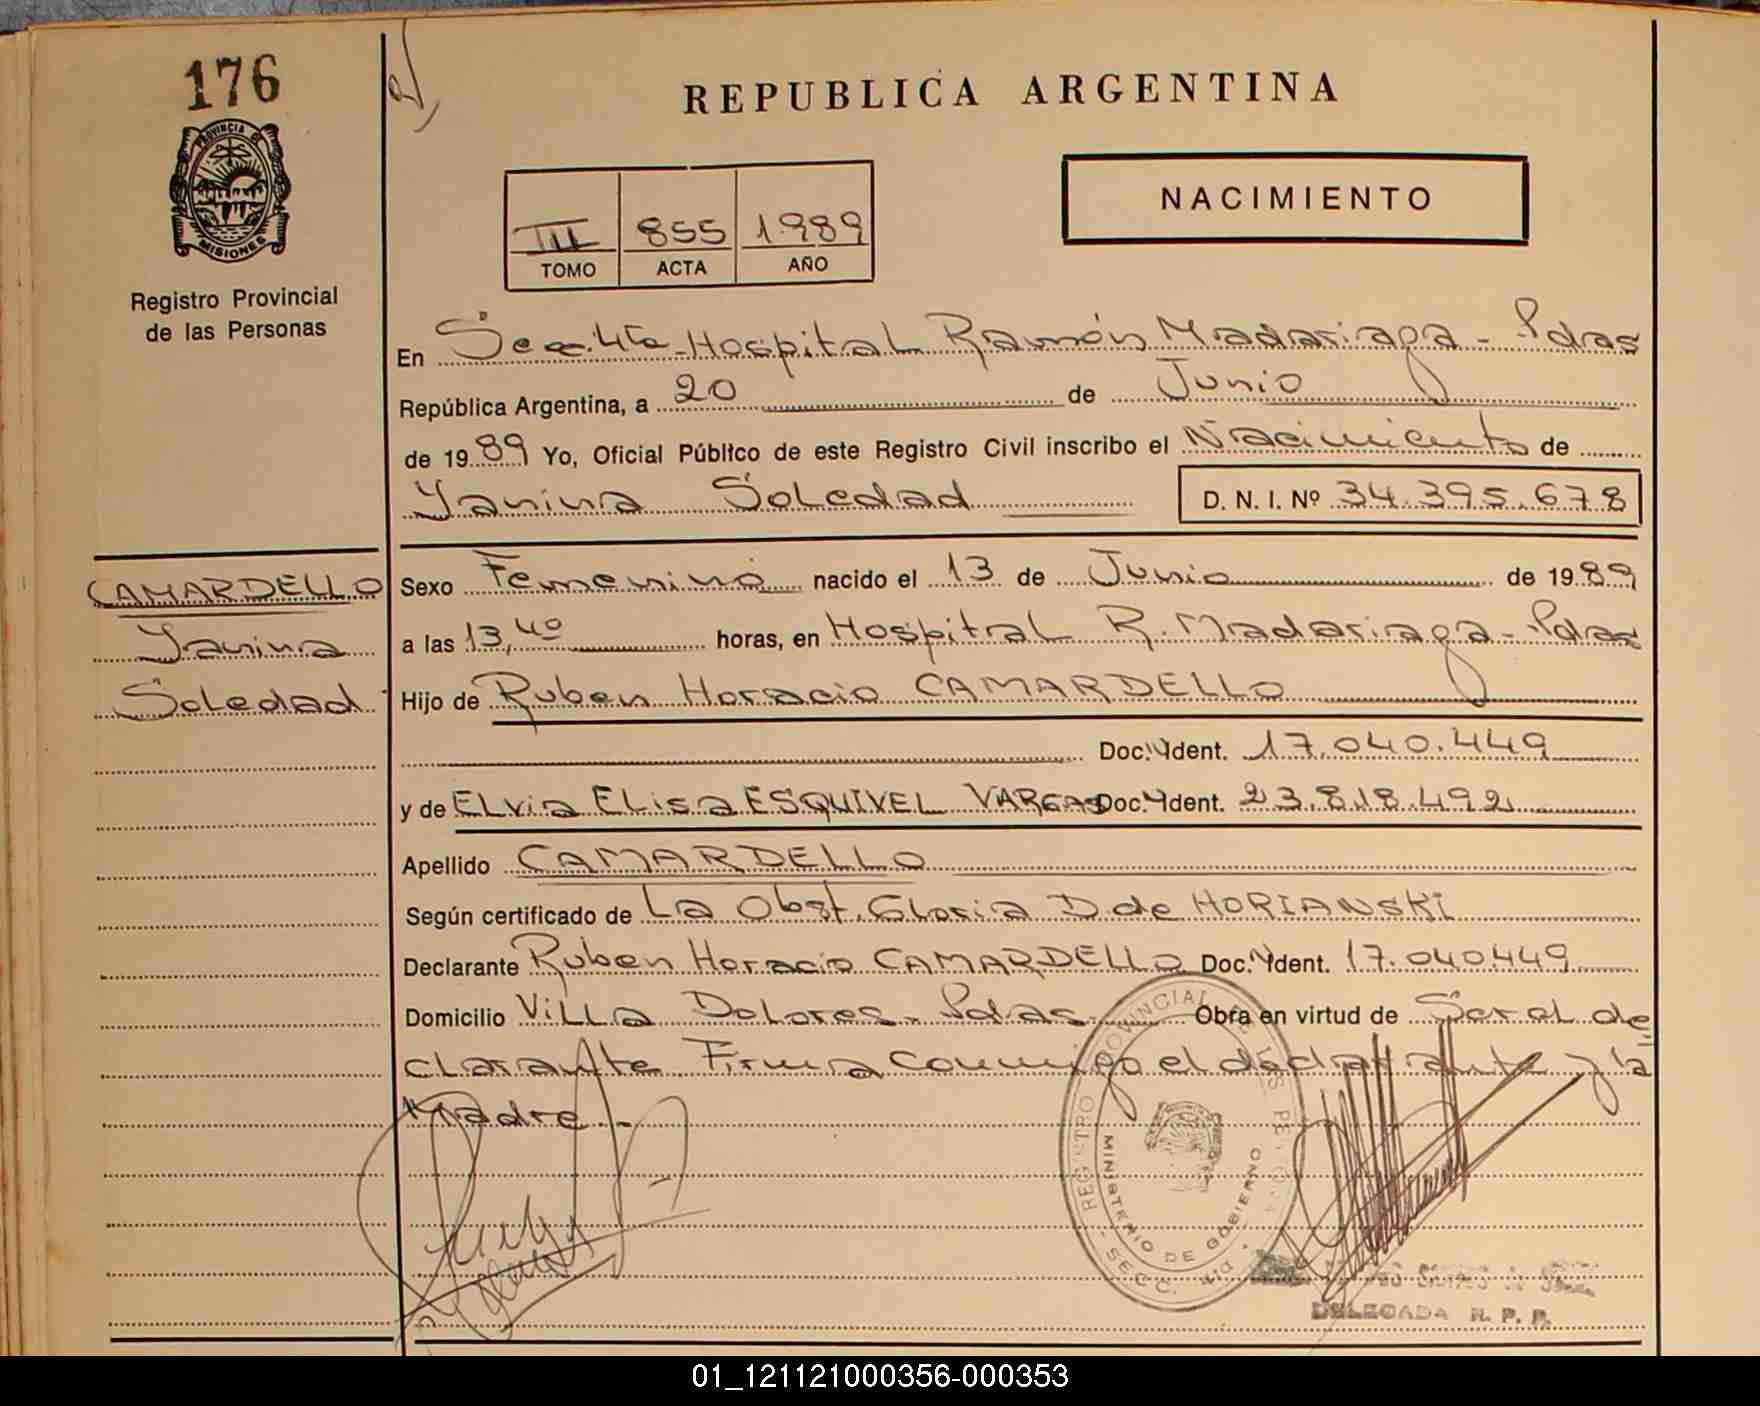 176
PROVINCIA DE
MISIONES
Registro Provincial
de las Personas
REPUBLICA ARGENTINA
NACIMIENTO
III 855 1989
TOMO ACTA AÑO
En Secc. 4ta - Hospital Ramón Madariaga - Pdas
República Argentina, a 20 de Junio
de 1989 Yo, Oficial Público de este Registro Civil inscribo el Nacimiento de
Yanina Soledad D. N. I. Nº 34.395.678
CAMARDELLO
Yanina
Soledad
Sexo Femenino nacido el 13 de Junio de 1989
a las 13,40 horas, en Hospital R. Madariaga - Pdas
Hijo de Ruben Horacio CAMARDELLO
Doc. Ident. 17.040.449
y de Elvia Elisa ESQUIVEL VARGAS Doc. Ident. 23.818.492
Apellido CAMARDELLO
Según certificado de La Obst. Gloria D. de HORIANSKI
Declarante Ruben Horacio CAMARDELLO Doc. Ident. 17.040.449
Domicilio Villa Dolores - Pdas Obra en virtud de Ser el de
clarante Firma conmigo el declarante y la
Madre.-
REGISTRO PROVINCIAL DE LAS PERSONAS
MINISTERIO DE GOBIERNO
SECC.
DELEGADA R. P. P.
01_121121000356-000353